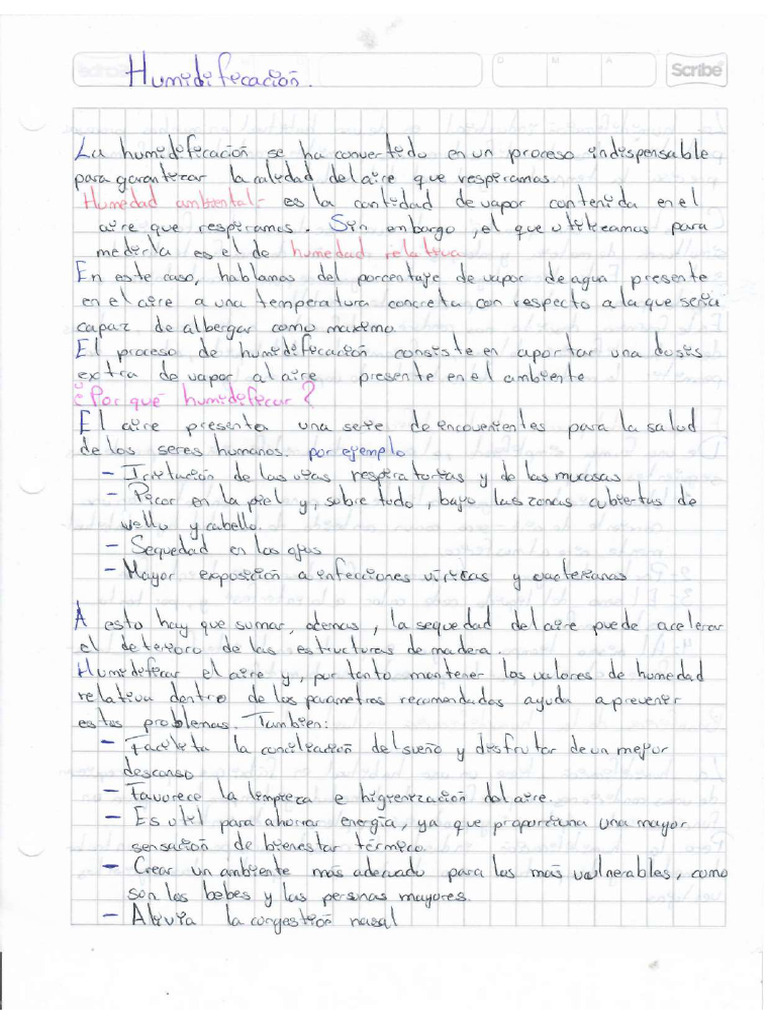 Humidificación.
D M A
Scribe
La humidificación se ha convertido en un proceso indispensable
para garantizar la calidad del aire que respiramos.
Humedad ambiental- es la cantidad de vapor contenida en el
aire que respiramos. Sin embargo, el que utilizamos para
medirla es el de humedad relativa
En este caso, hablamos del porcentaje de vapor de agua presente
en el aire a una temperatura concreta con respecto a la que sería
capaz de albergar como maximo.
El proceso de humidificación consiste en aportar una dosis
extra de vapor al aire presente en el ambiente
¿Por qué humidificar?
El aire presenta una serie de inconvenientes para la salud
de los seres humanos. por ejemplo
- Irritación de las vias respiratorias y de las mucosas
- Picor en la piel y, sobre todo, bajo las zonas cubiertas de
vello y cabello.
- Sequedad en los ojos
- Mayor exposición a infecciones víricas y bacterianas
A esto hay que sumar, ademas, la sequedad del aire puede acelerar
el deterioro de las estructuras de madera.
Humidificar el aire y, por tanto mantener los valores de humedad
relativa dentro de los parametros recomendados ayuda a prevenir
estos problemas. Tambien:
- Facilita la conciliación del sueño y disfrutar de un mejor
descanso
- Favorece la limpieza e higienización del aire.
- Es util para ahorrar energía, ya que proporciona una mayor
sensación de bienestar térmico.
- Crear un ambiente más adecuado para los más vulnerables, como
son los bebes y las personas mayores.
- Alivia la congestión nasal